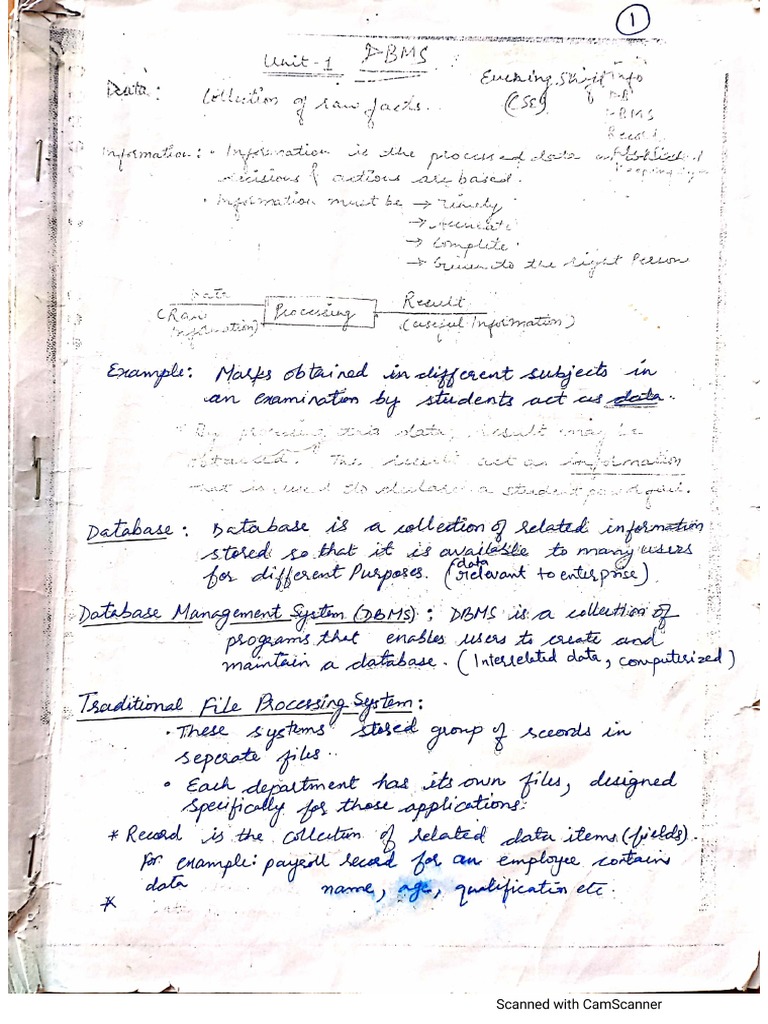 1
Unit-1 DBMS
(CSE)
Info
DBMS
Data: Collection of raw facts.
Information: • Information is the processed data on which
decisions & actions are based.
• Information must be → Timely
→ Accurate
→ Complete
→ Given to the right Person
Data Result
(Raw Information) Processing (Useful Information)
Example: Marks obtained in different subjects in
an examination by students act as data.
• By processing this data, result may be
obtained. The result act as information
that is used to declare a student
Database: Database is a collection of related information
stored so that it is available to many users
for different Purposes. (data relevant to enterprise)
Database Management System (DBMS): DBMS is a collection of
programs that enables users to create and
maintain a database. (Interrelated data, computerized)
Traditional File Processing System:
• These systems stored group of records in
seperate files..
• Each department has its own files, designed
specifically for those applications.
* Record is the collection of related data items (fields).
For example: payroll record for an employee contains
data name, age, qualification etc.
*
Scanned with CamScanner